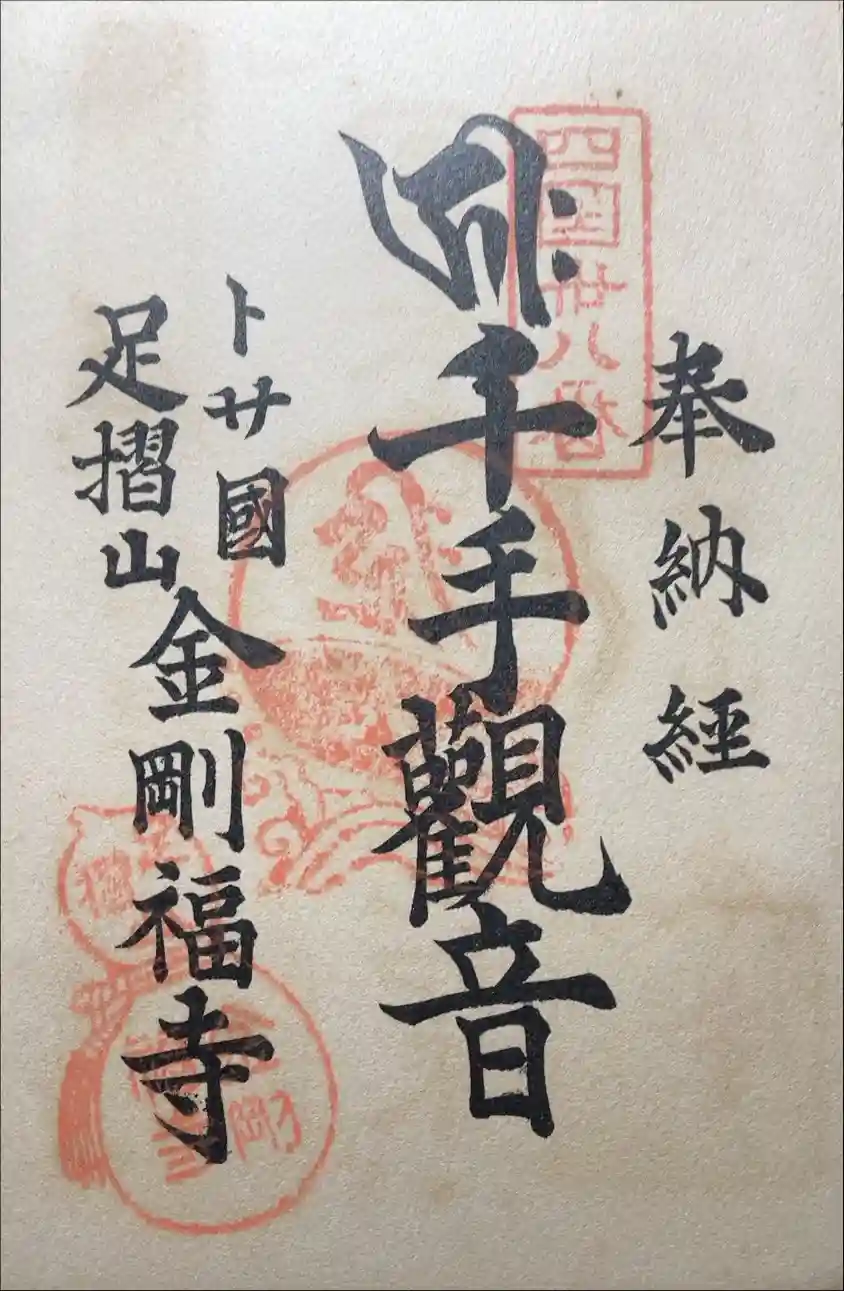 奉納經
四國卅八番
千手觀音
トサ國
足摺山
金剛福寺